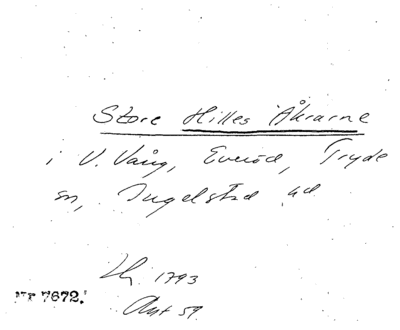 Store Hilles Åkrarne
i V. Vång, Everöd, Tryde
sn, Ingelstad hd
1793
Nr 7672.
Akt 59.